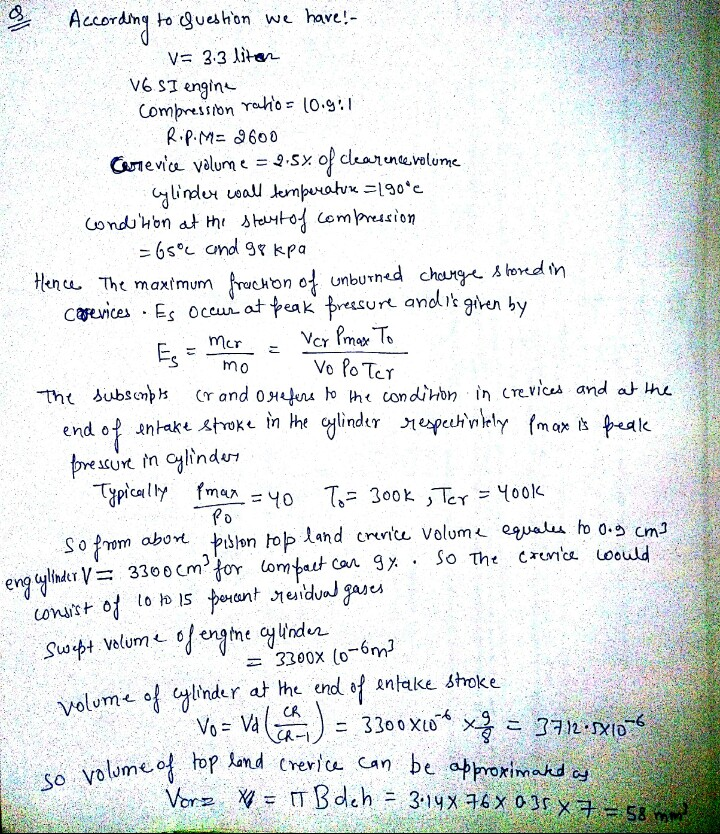 Q According to Question we have!-
V = 3.3 liter
V6 SI engine
Compression ratio = 10.9:1
R.P.M = 2600
Crevice volume = 2.5% of clearence volume
cylinder wall temperature = 190°c
condition at the start of compression
= 65°c and 98 kpa
Hence The maximum fraction of unburned charge stored in
crevices . Es occur at peak pressure and is given by
Es = mcr/mo = Vcr Pmax To / Vo Po Tcr
The subscripts cr and 0 refers to the condition in crevices and at the
end of entake stroke in the cylinder respectively Pmax is peak
pressure in cylinder
Typically Pmax/Po = 40 To = 300k , Tcr = 400k
So from above piston top land crevice volume equales to 0.9 cm3
eng cylinder V = 3300 cm3 for compact car 9% . So The crevice would
consist of 10 to 15 percent residual gases
Swept volume of engine cylinder
= 3300 x 10-6 m3
Volume of cylinder at the end of entake stroke
Vo = Vd (CR/CR-1) = 3300x10-6 x 9/8 = 3712.5x10-6
so volume of top land crevice can be approximated as
Vcr = = π B dch = 3.14 x 76 x 0.35 x 7 = 58 mm3